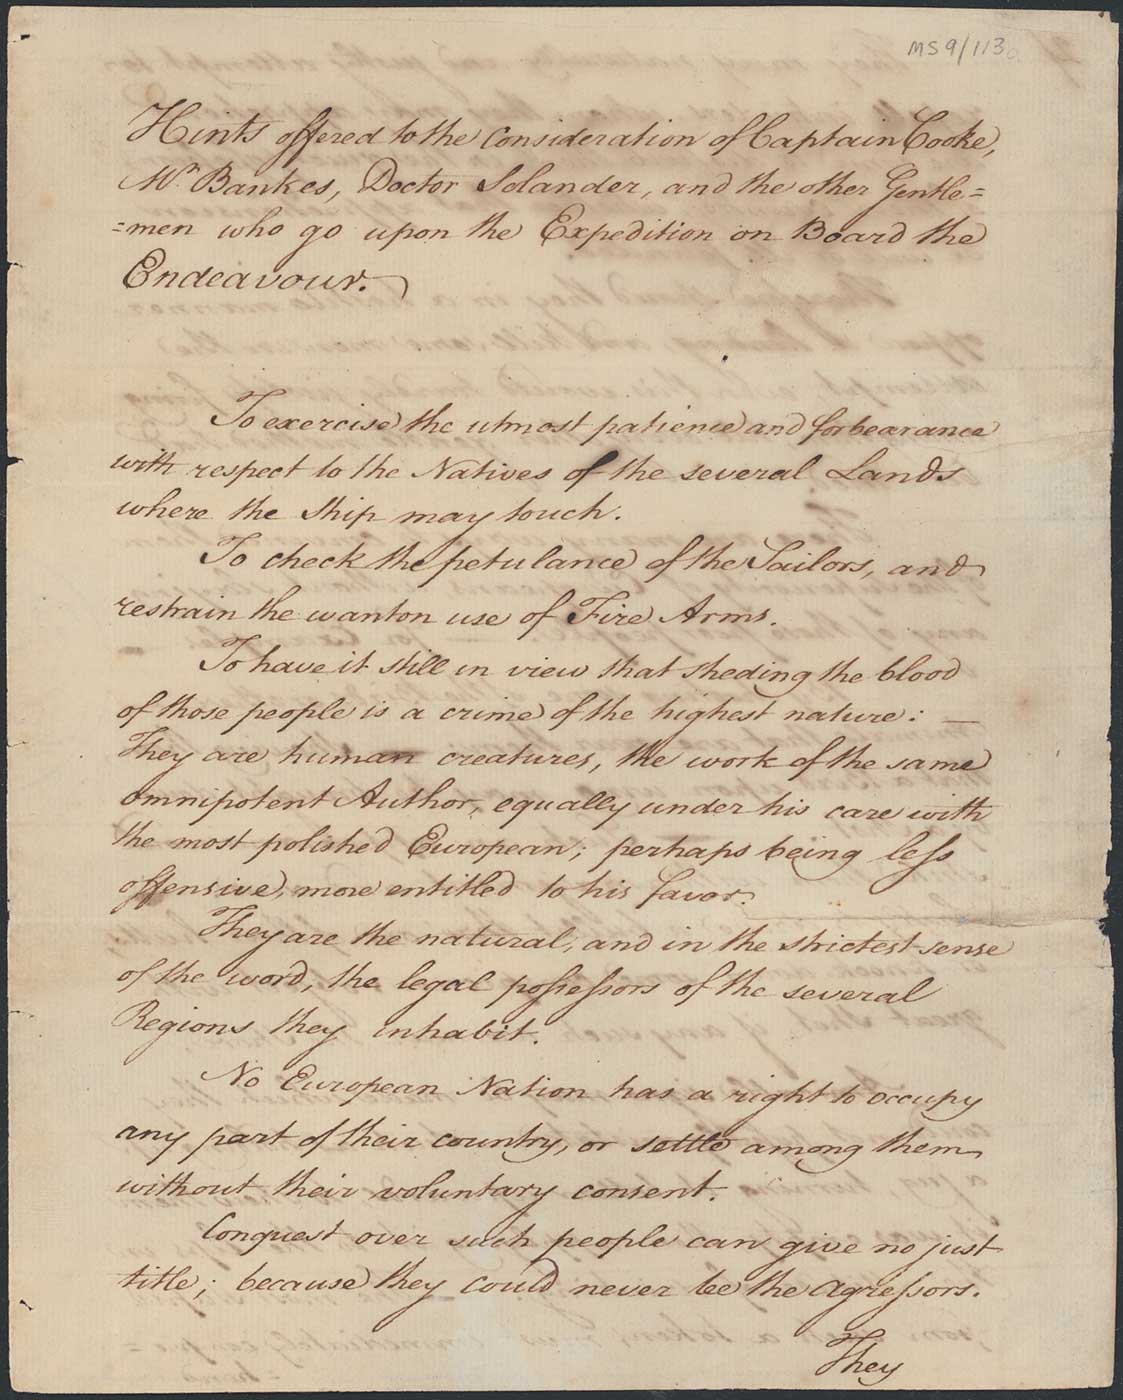 MS 9/113a
Hints offered to the consideration of Captain Cooke,
Mr. Bankes, Doctor Solander, and the other Gentle=
=men who go upon the Expedition on Board the
Endeavour.
To exercise the utmost patience and forbearance
with respect to the Natives of the several Lands
where the Ship may touch.
To check the petulance of the Sailors, and
restrain the wanton use of Fire Arms.
To have it still in view that sheding the blood
of those people is a crime of the highest nature: —
They are human creatures, the work of the same
omnipotent Author, equally under his care with
the most polished European; perhaps being less
offensive, more entitled to his favor.
They are the natural, and in the strictest sense
of the word, the legal possessors of the several
Regions they inhabit.
No European Nation has a right to occupy
any part of their country, or settle among them
without their voluntary consent.
Conquest over such people can give no just
title; because they could never be the Agressors.
They